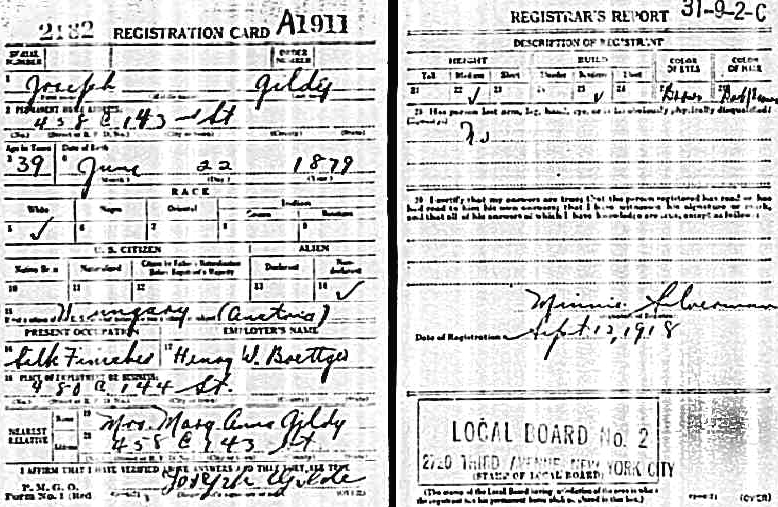 2132 REGISTRATION CARD A1911
SERIAL NUMBER ORDER NUMBER
1 Joseph Gildy
2 PERMANENT HOME ADDRESS:
458 E 143 St
Age in Years Date of Birth
3 39 4 June 22 1879
(Month) (Day) (Year)
RACE
White Negro Oriental Indian
Citizen
5 ✓ 6 7 8 9
U. S. CITIZEN ALIEN
Native Born Naturalized Citizen by Father's Naturalization Before Registrant's Majority Declarant Non-declarant
10 11 12 13 14 ✓
15 Hungary (Austria)
PRESENT OCCUPATION EMPLOYER'S NAME
16 Silk Finisher 17 Henry W. Boettger
18 PLACE OF EMPLOYMENT OR BUSINESS:
480 E 144 St.
NEAREST RELATIVE
Name 19 Mrs. Mary Ann Gildy
Address 20 458 E 143 St
I AFFIRM THAT I HAVE VERIFIED ABOVE ANSWERS AND THAT THEY ARE TRUE
P. M. G. O.
Form No. 1 (Red)
REGISTRAR'S REPORT 31-9-2-C
DESCRIPTION OF REGISTRANT
HEIGHT BUILD COLOR OF EYES COLOR OF HAIR
Tall Medium Short Slender Medium Stout
21 22 ✓ 23 24 25 ✓ 26 Brown
29 Has person lost arm, leg, hand, eye, or is he obviously physically disqualified?
(Specify.)
No
30 I certify that my answers are true; that the person registered has read or has
had read to him his own answers; that I have witnessed his signature or mark,
and that all of his answers of which I have knowledge are true, except as follows:
Minnie Silverman
Date of Registration Sept 12, 1918
LOCAL BOARD No. 2
2720 THIRD AVENUE, NEW YORK CITY
(STAMP OF LOCAL BOARD)
(The stamp of the Local Board having jurisdiction of the area in which
the registrant has his permanent home shall be placed in this box.)
(OVER)